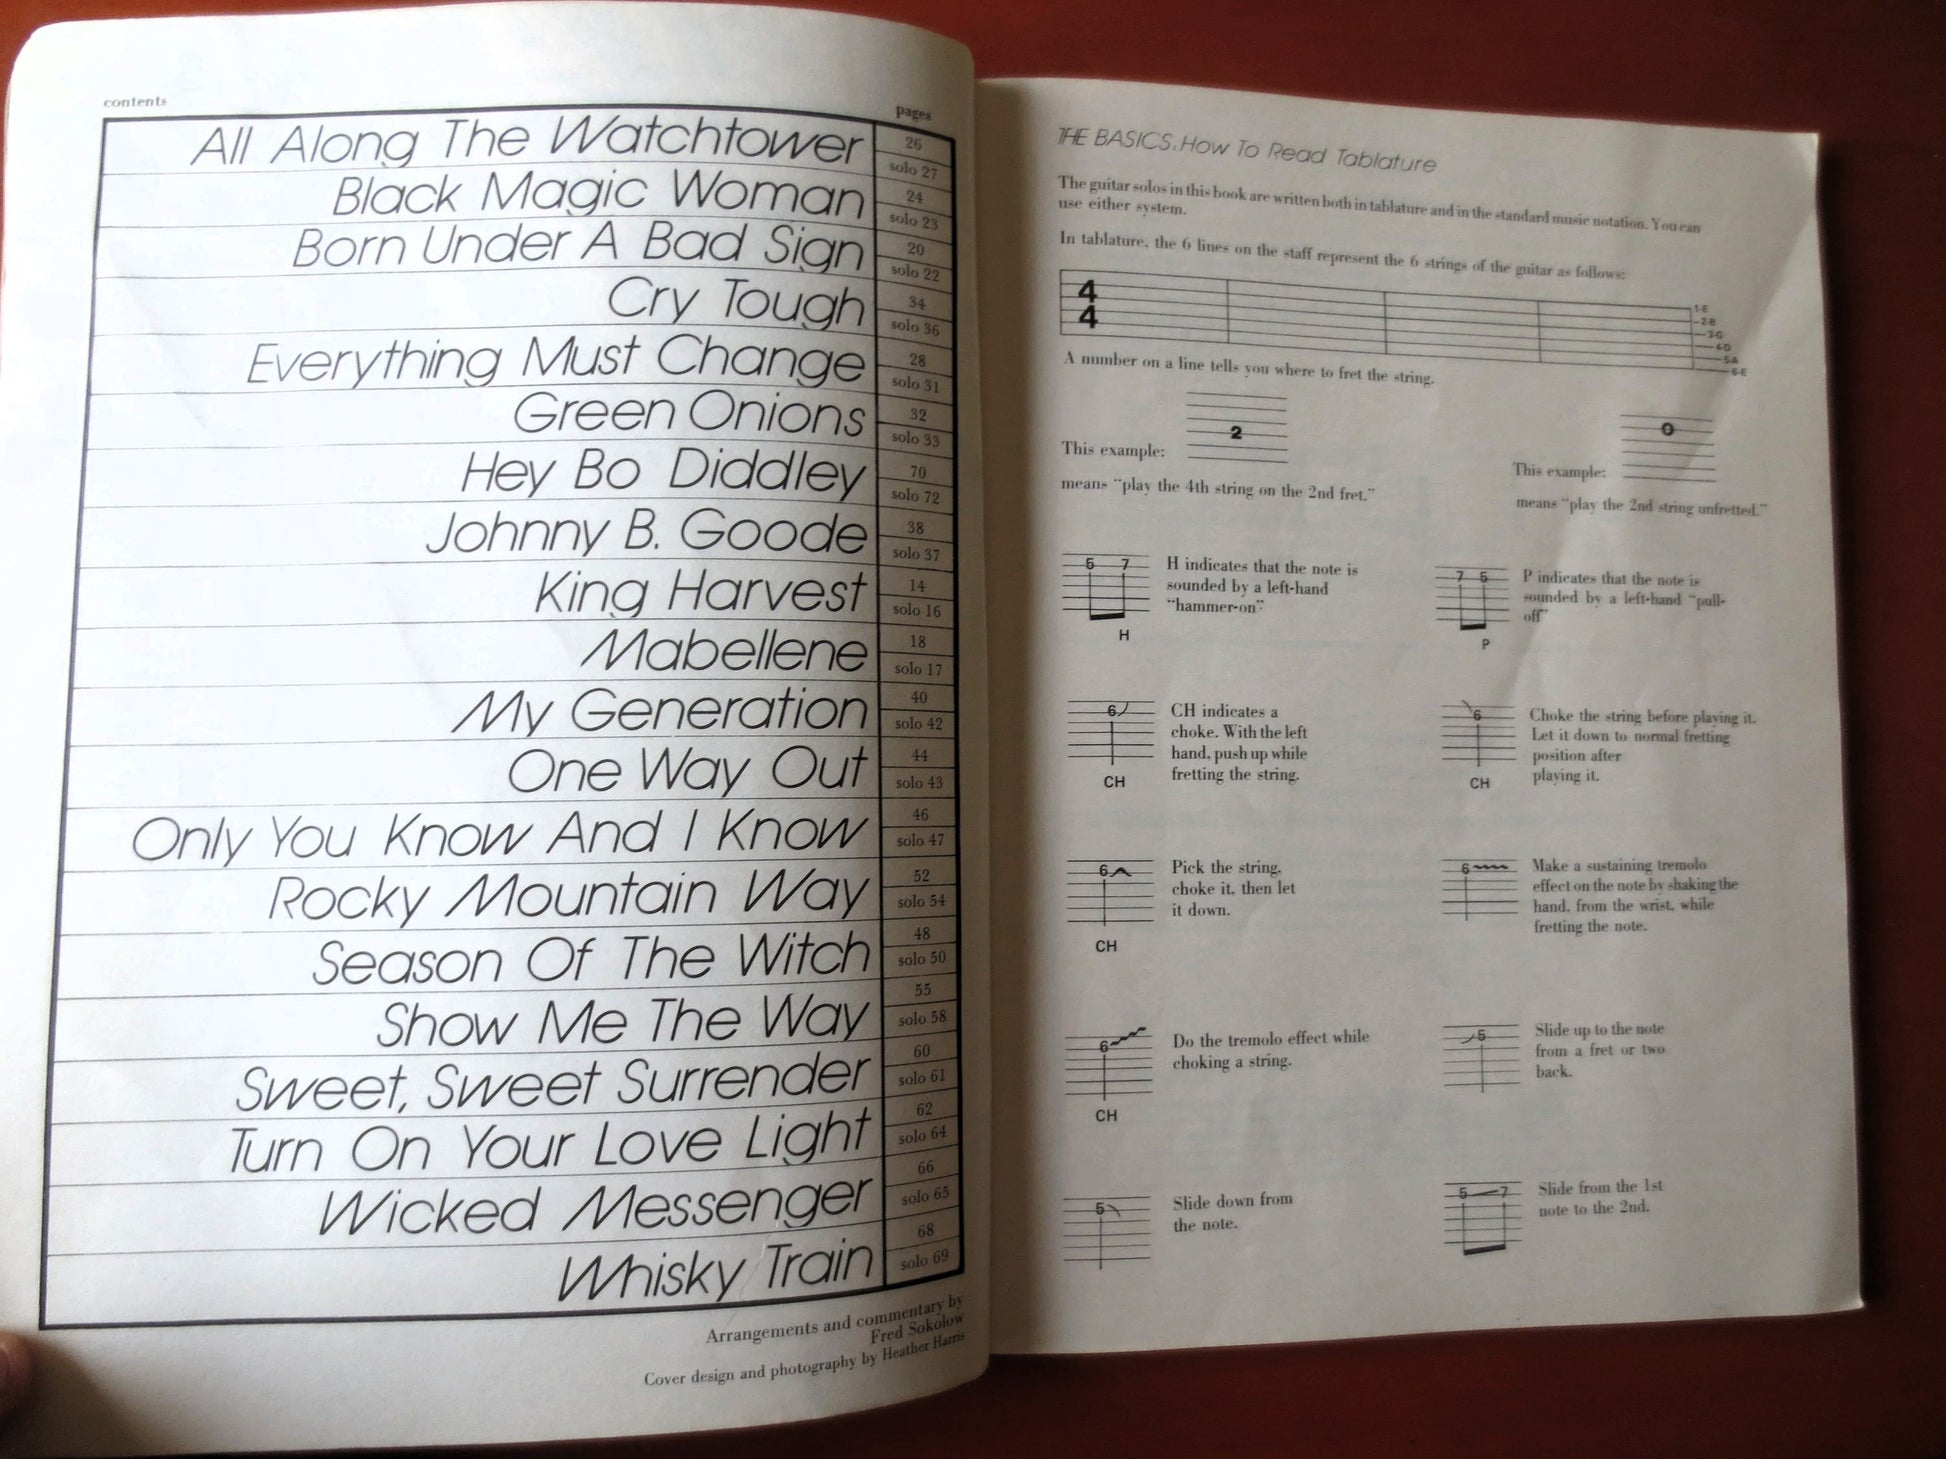 contents
pages
All Along The Watchtower
26
solo 27
Black Magic Woman
24
solo 23
Born Under A Bad Sign
20
solo 22
Cry Tough
34
solo 36
Everything Must Change
28
solo 31
Green Onions
32
solo 33
Hey Bo Diddley
70
solo 72
Johnny B. Goode
38
solo 37
King Harvest
14
solo 16
Mabellene
18
solo 17
My Generation
40
solo 42
One Way Out
44
solo 43
Only You Know And I Know
46
solo 47
Rocky Mountain Way
52
solo 54
Season Of The Witch
48
solo 50
Show Me The Way
55
solo 58
Sweet, Sweet Surrender
60
solo 61
Turn On Your Love Light
62
solo 64
Wicked Messenger
66
solo 65
Whisky Train
68
solo 69
Arrangements and commentary by
Fred Sokolow
Cover design and photography by Heather Harris
THE BASICS: How To Read Tablature
The guitar solos in this book are written both in tablature and in the standard music notation. You can
use either system.
In tablature, the 6 lines on the staff represent the 6 strings of the guitar as follows:
4
4
1-E
2-B
3-G
4-D
5-A
6-E
A number on a line tells you where to fret the string.
This example:
2
means "play the 4th string on the 2nd fret."
This example:
0
means "play the 2nd string unfretted."
5 7
H
H indicates that the note is
sounded by a left-hand
"hammer-on".
7 5
P
P indicates that the note is
sounded by a left-hand "pull-
off"
6
CH
CH indicates a
choke. With the left
hand, push up while
fretting the string.
6
CH
Choke the string before playing it.
Let it down to normal fretting
position after
playing it.
6
CH
Pick the string,
choke it, then let
it down.
6
Make a sustaining tremolo
effect on the note by shaking the
hand, from the wrist, while
fretting the note.
6
CH
Do the tremolo effect while
choking a string.
5
Slide up to the note
from a fret or two
back.
5
Slide down from
the note.
5 7
Slide from the 1st
note to the 2nd.